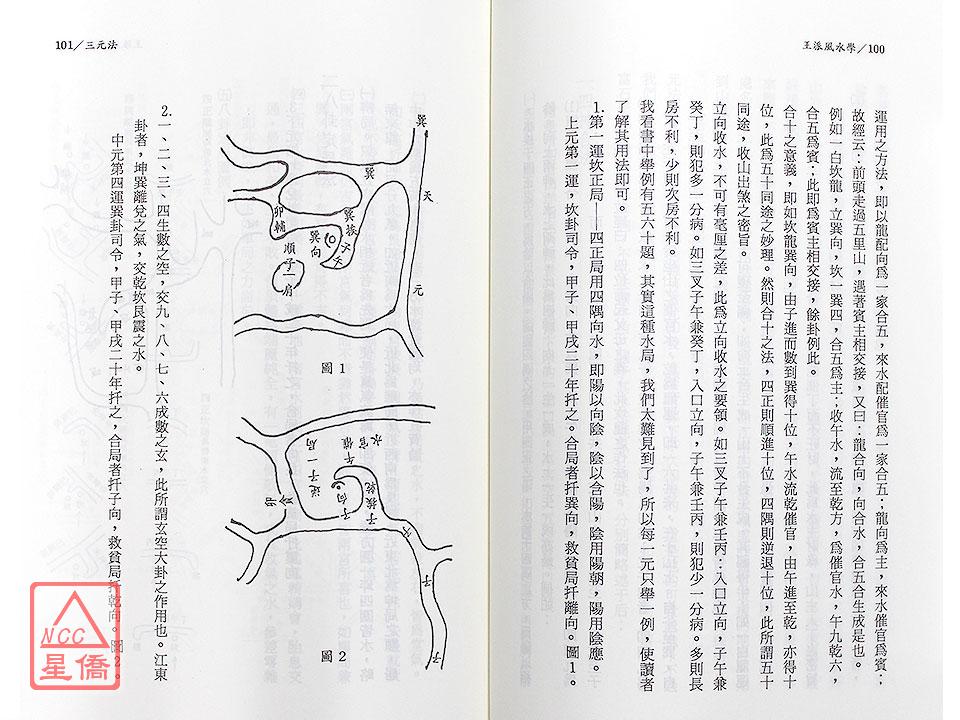 王派風水學／100
運用之方法，即以龍配向爲一家合五，來水配催官爲一家合五：龍向爲主，來水催官爲賓：
故經云：前頭走過五里山，遇著賓主相交接，又曰：龍合向，向合水，合五合生成是也。
例如一白坎龍，立巽向，坎一巽四，合五爲主：收午水，流至乾方，爲催官水，午九乾六，
合五爲賓：此即爲賓主相交接，餘卦例此。
合十之意義，即如坎龍巽向，由子進而數到巽得十位，午水流乾催官，由午進至乾，亦得十
位，此爲五十同途之妙理。然則合十之法，四正則順進十位，四隅則逆退十位，此所謂五十
同途，收山出煞之密旨。
立向收水，不可有毫厘之差，此爲立向收水之要領。如三叉子午兼壬丙：入口立向，子午兼
癸丁，則犯多一分病。如三叉子午兼癸丁，入口立向，子午兼壬丙，則犯少一分病。多則長
房不利，少則次房不利。
我看書中舉例有五六十題，其實這種水局，我們太難見到了，所以每一元只舉一例，使讀者
了解其用法即可。
1.第一運坎正局——四正局用四隅向水，即陽以向陰，陰以含陽，陰用陽朝，陽用陰應。
上元第一運，坎卦司令，甲子、甲戌二十年扦之。合局者扦巽向，救貧局扦離向。圖1。
101／三元法
巽
天
元
巽
卯輔
巽向
順子一局
圖 1
午催
官水
逆子一局
子向
卯
子
圖 2
2.一、二、三、四生數之空，交九、八、七、六成數之玄，此所謂玄空大卦之作用也。江東
卦者，坤巽離兌之氣，交乾坎艮震之水。
中元第四運巽卦司令，甲子、甲戌二十年扦之，合局者扦子向，救貧局扦乾向。圖2。
NCC
星僑